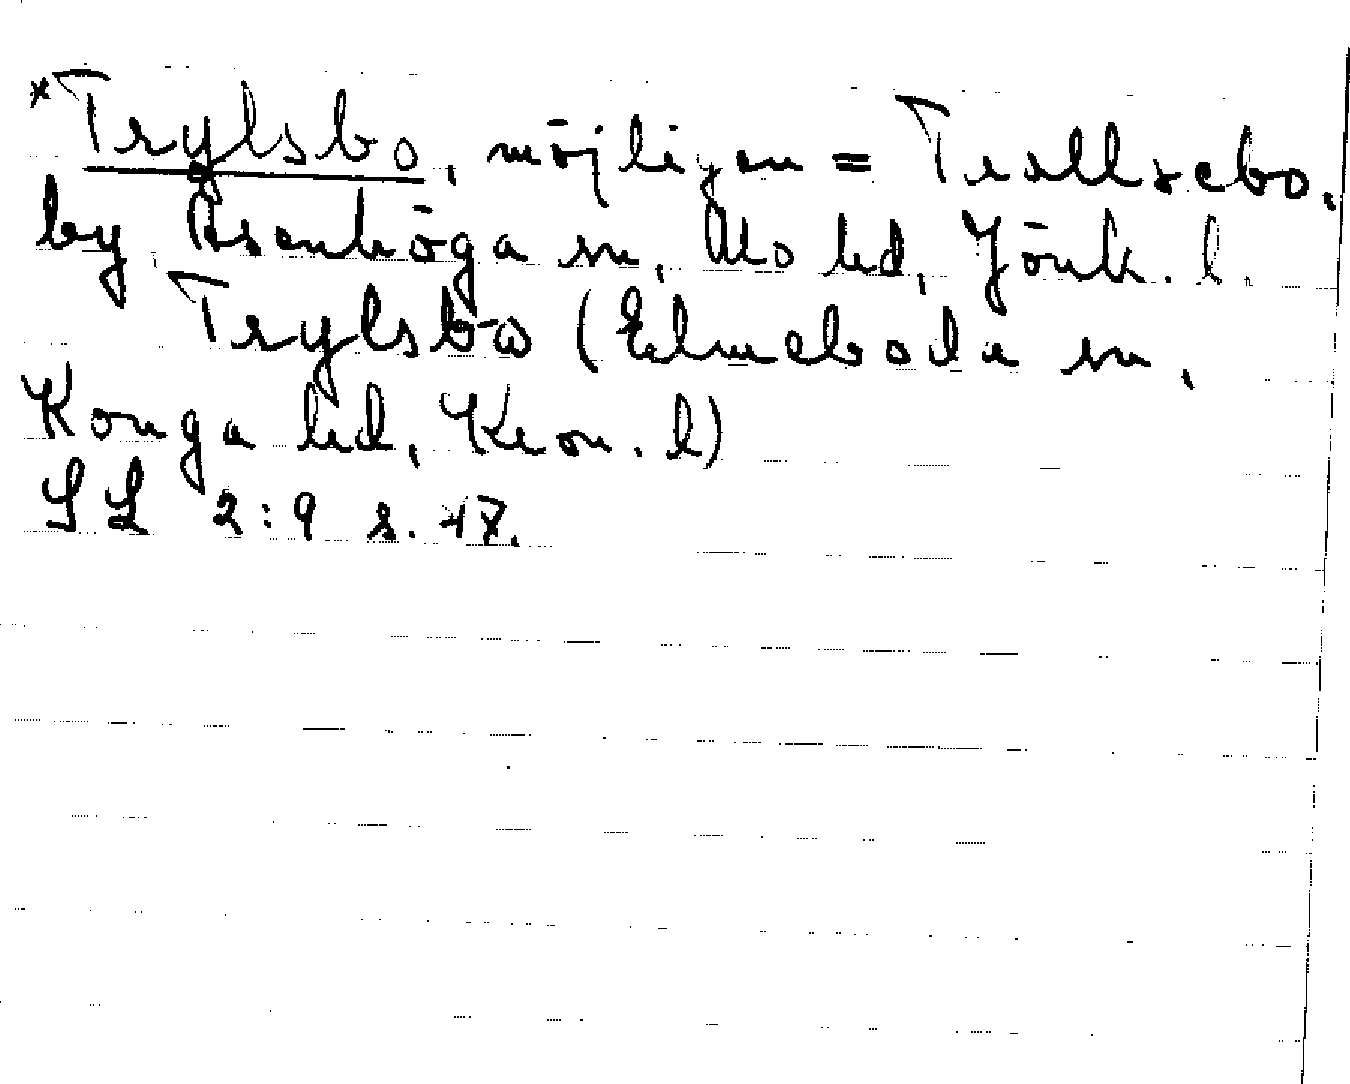 *Trylsbo, möjligen = Trollsebo,
by, Åsenhöga sn, Mo hd, Jönk. l.
Trylsbo (Elmeboda sn,
Konga hd, Kron. l)
SL 2:9 s. 47.